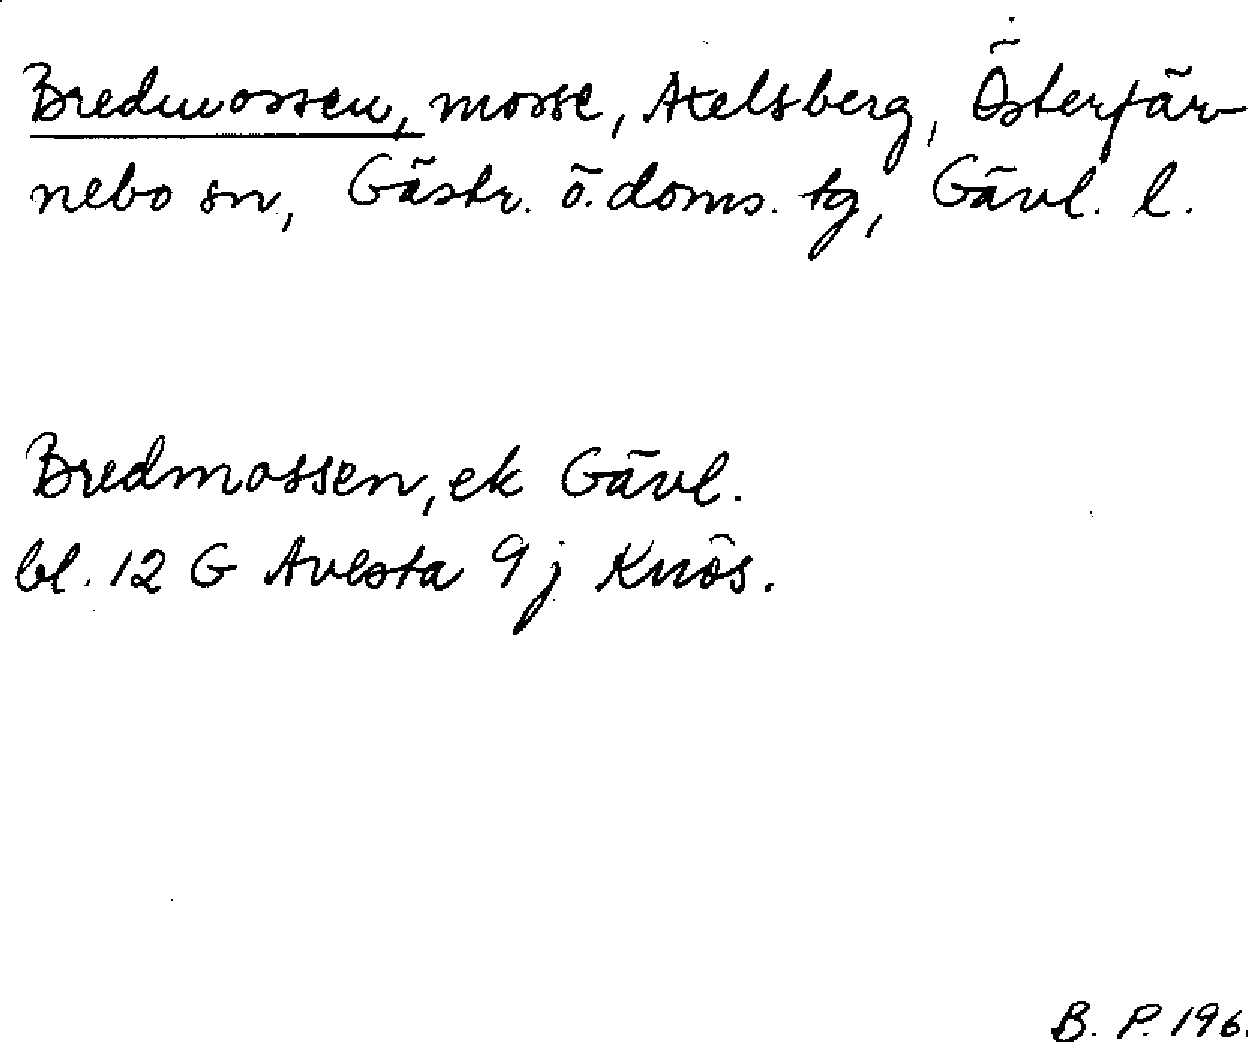 Bredmossen, mosse, Axelsberg, Österfär-
nebo sn, Gästr. ö. doms. tg, Gävl. l.
Bredmossen, ek Gävl.
bl. 12 G Avesta 9 j Knös.
B. P. 196